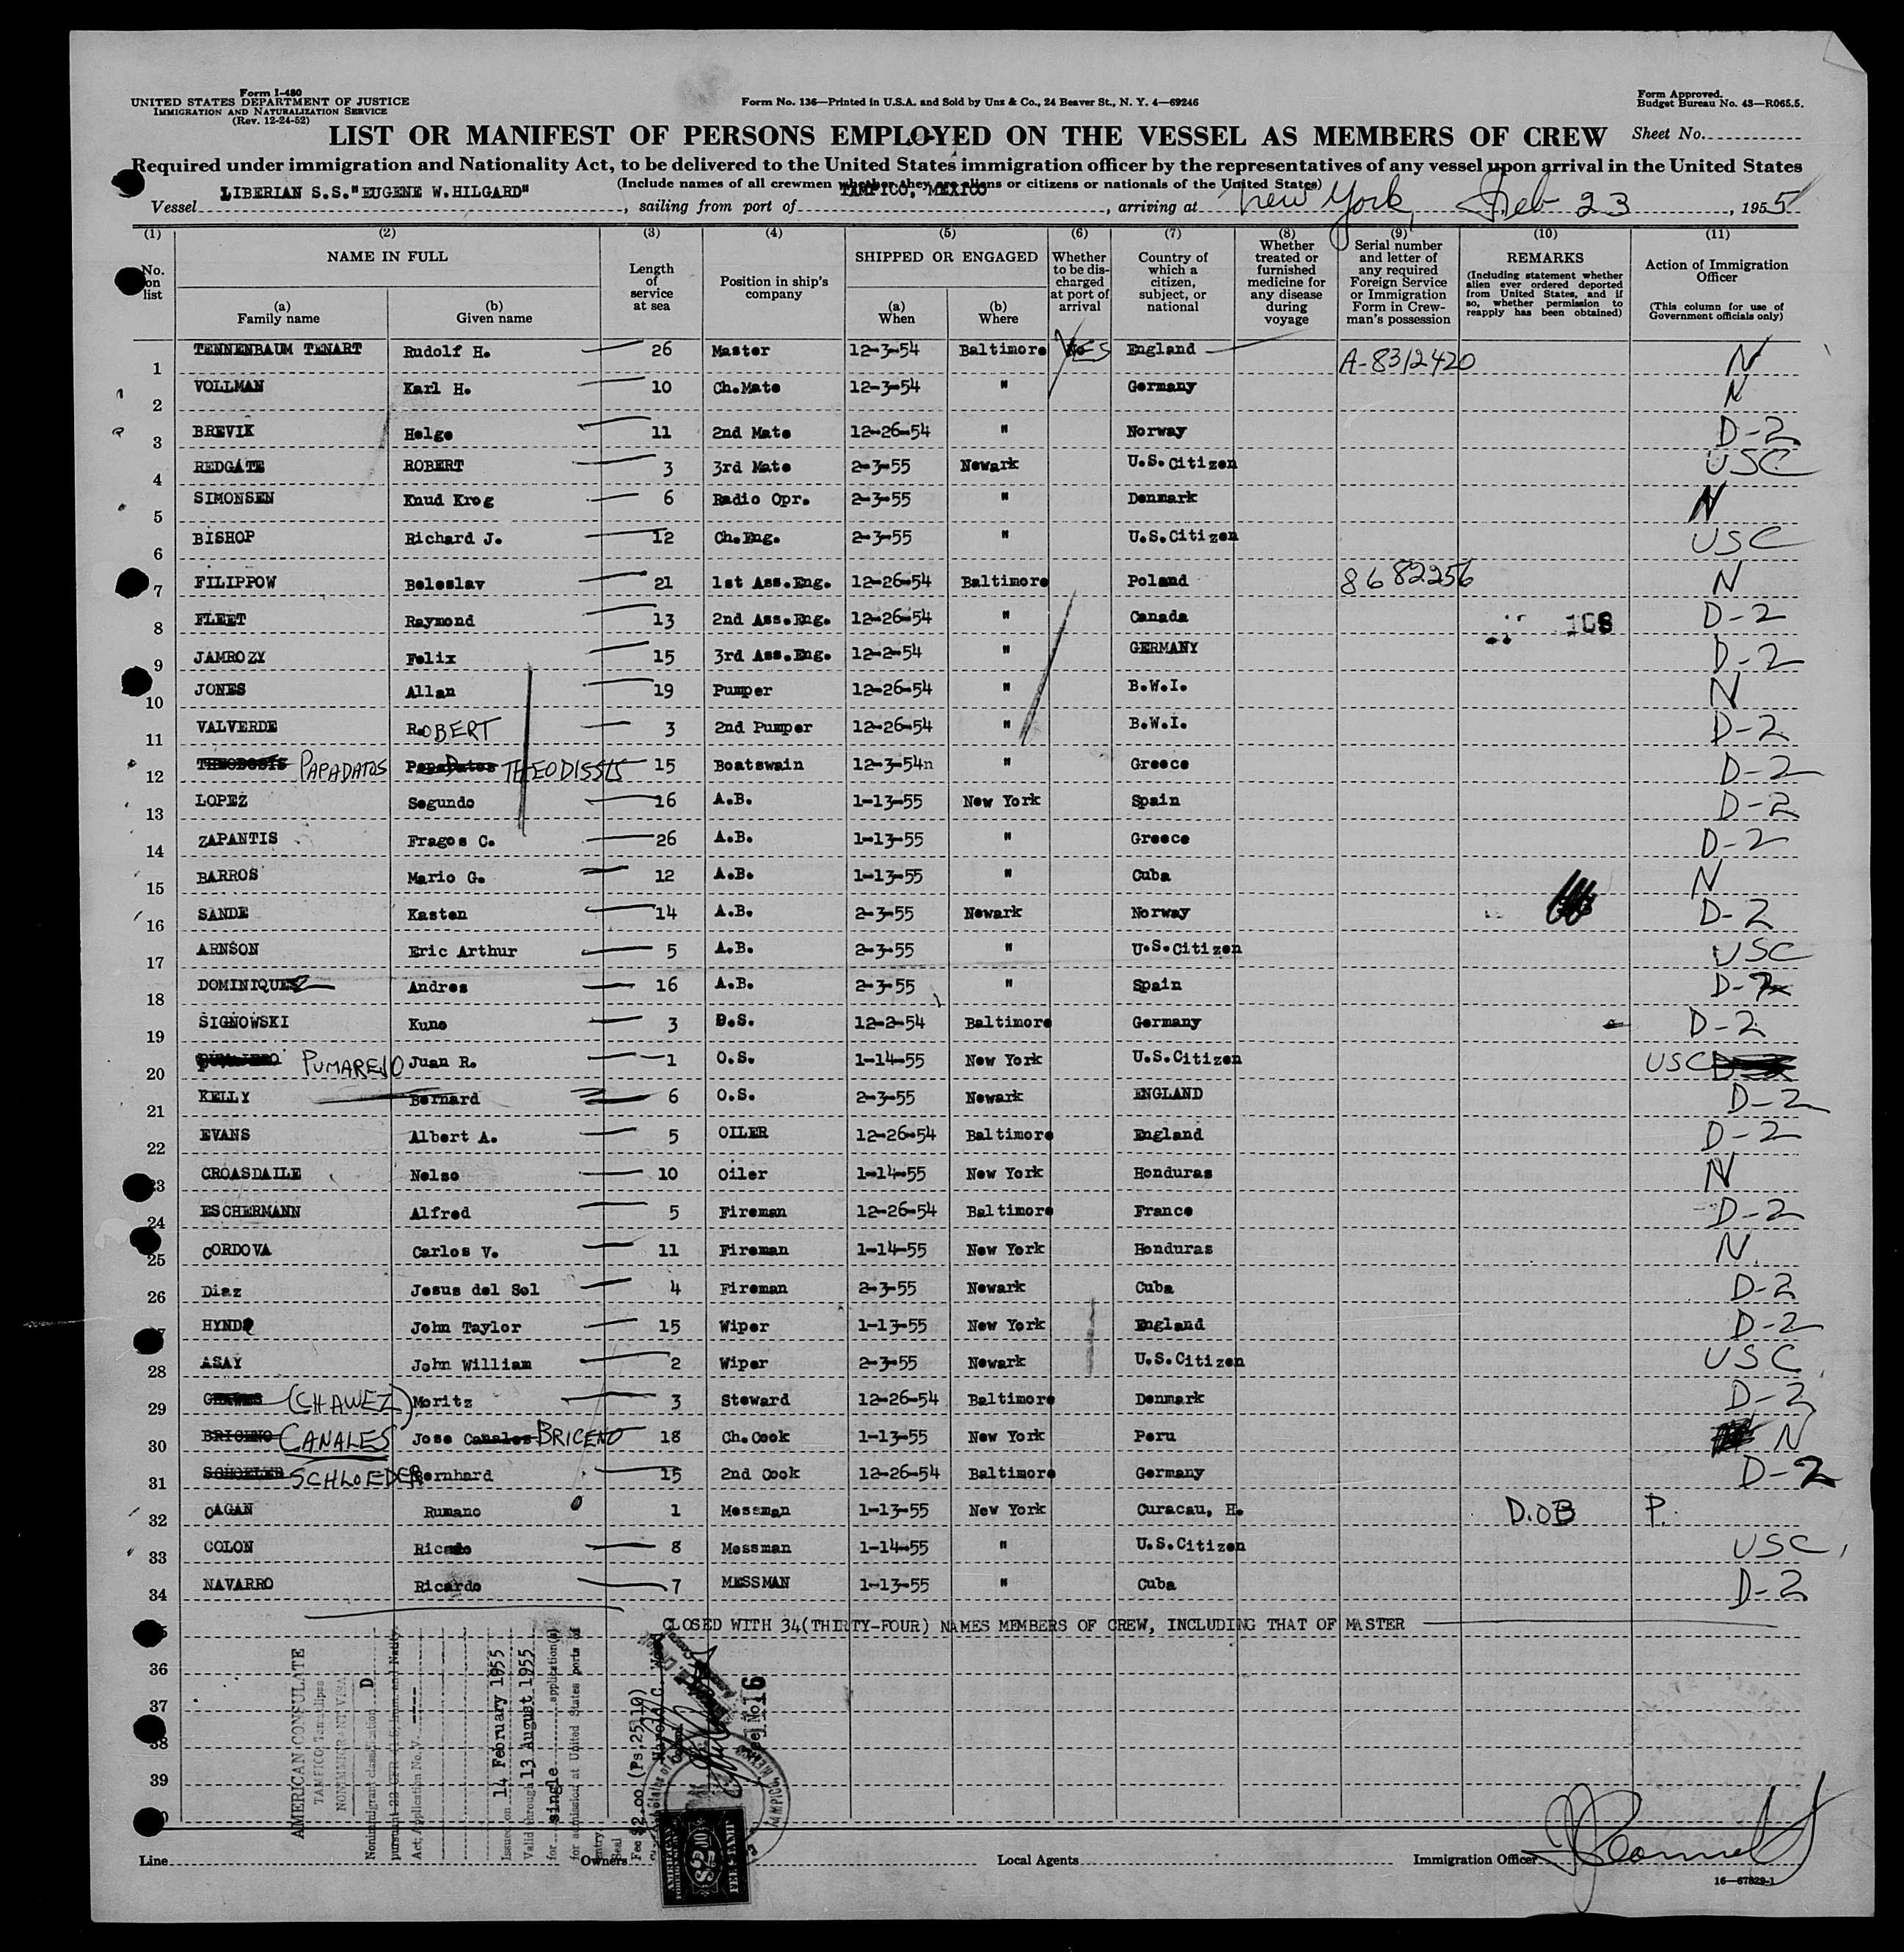 Form I-480
UNITED STATES DEPARTMENT OF JUSTICE
IMMIGRATION AND NATURALIZATION SERVICE
(Rev. 12-24-52)
Form No. 136—Printed in U.S.A. and Sold by Unz & Co., 24 Beaver St., N. Y. 4—69246
Form Approved.
Budget Bureau No. 43—R065.5.
LIST OR MANIFEST OF PERSONS EMPLOYED ON THE VESSEL AS MEMBERS OF CREW
Sheet No.
Required under immigration and Nationality Act, to be delivered to the United States immigration officer by the representatives of any vessel upon arrival in the United States
(Include names of all crewmen whether they are aliens or citizens or nationals of the United States)
Vessel LIBERIAN S.S."EUGENE W.HILGARD", sailing from port of TAMPICO, MEXICO, arriving at New York, Feb 23, 1955
(1) No. on list
(2) NAME IN FULL
(a) Family name
(b) Given name
(3) Length of service at sea
(4) Position in ship's company
(5) SHIPPED OR ENGAGED
(a) When
(b) Where
(6) Whether to be discharged at port of arrival
(7) Country of which a citizen, subject, or national
(8) Whether treated or furnished medicine for any disease during voyage
(9) Serial number and letter of any required Foreign Service or Immigration Form in Crewman's possession
(10) REMARKS
(Including statement whether alien ever ordered deported from United States, and if so, whether permission to reapply has been obtained)
(11) Action of Immigration Officer
(This column for use of Government officials only)
1 TENNENBAUM TENART Rudolf H. 26 Master 12-3-54 Baltimore No YES England A-8312420 N
2 VOLLMAN Karl H. 10 Ch.Mate 12-3-54 " Germany N
3 BREVIK Helge 11 2nd Mate 12-26-54 " Norway D-2
4 REDGATE ROBERT 3 3rd Mate 2-3-55 Newark U.S.Citizen USC
5 SIMONSEN Knud Krog 6 Radio Opr. 2-3-55 " Denmark N
6 BISHOP Richard J. 12 Ch.Eng. 2-3-55 " U.S.Citizen USC
7 FILIPPOW Boleslav 21 1st Ass.Eng. 12-26-54 Baltimore Poland 8682256 N
8 FLEET Raymond 13 2nd Ass.Eng. 12-26-54 " Canada 108 D-2
9 JAMROZY Felix 15 3rd Ass.Eng. 12-2-54 " GERMANY D-2
10 JONES Allan 19 Pumper 12-26-54 " B.W.I. N
11 VALVERDE ROBERT 3 2nd Pumper 12-26-54 " B.W.I. D-2
12 THEODOSIS PAPADATOS PapaDatos THEODISSIS 15 Boatswain 12-3-54n " Greece D-2
13 LOPEZ Segundo 16 A.B. 1-13-55 New York Spain D-2
14 ZAPANTIS Fragos C. 26 A.B. 1-13-55 " Greece D-2
15 BARROS Mario G. 12 A.B. 1-13-55 " Cuba N
16 SANDE Kasten 14 A.B. 2-3-55 Newark Norway D-2
17 ARNSON Eric Arthur 5 A.B. 2-3-55 " U.S.Citizen USC
18 DOMINIQUEZ Andres 16 A.B. 2-3-55 " Spain D-2
19 SIGNOWSKI Kuno 3 D.S. 12-2-54 Baltimore Germany D-2
20 PUMAREJO Juan R. 1 O.S. 1-14-55 New York U.S.Citizen USC
21 KELLY Bernard 6 O.S. 2-3-55 Newark ENGLAND D-2
22 EVANS Albert A. 5 OILER 12-26-54 Baltimore England D-2
23 CROASDAILE Nelso 10 Oiler 1-14-55 New York Honduras N
24 ESCHERMANN Alfred 5 Fireman 12-26-54 Baltimore France D-2
25 CORDOVA Carlos V. 11 Fireman 1-14-55 New York Honduras N.
26 Diaz Jesus del Sol 4 Fireman 2-3-55 Newark Cuba D-2
27 HYND John Taylor 15 Wiper 1-13-55 New York England D-2
28 ASAY John William 2 Wiper 2-3-55 Newark U.S.Citizen USC
29 (CHAWEZ) Moritz 3 Steward 12-26-54 Baltimore Denmark D-2
30 BRICENO CANALES Jose Canales BRICENO 18 Ch.Cook 1-13-55 New York Peru N
31 SCHLOEDER Bernhard 15 2nd Cook 12-26-54 Baltimore Germany D-2
32 CAGAN Rumano 1 Messman 1-13-55 New York Curacau, H. D.OB P.
33 COLON 8 Messman 1-14-55 " U.S.Citizen USC
34 NAVARRO Ricardo 7 MESSMAN 1-13-55 " Cuba D-2
CLOSED WITH 34(THIRTY-FOUR) NAMES MEMBERS OF CREW, INCLUDING THAT OF MASTER
36
37
38
39
AMERICAN CONSULATE
TAMPICO, Tamaulipas
NONIMMIGRANT VISA
Nonimmigrant classification D
Act, Application No. V
Issued on 14 February 1955
Valid through 13 August 1955
for single application(s)
for admission at United States ports of
entry.
Seal
Fee $2.00 (Ps.25.10)
Harold C. Wood
AMERICAN
$2.00
FEE STAMP
TAMPICO, MEXICO
Line
Owners
Local Agents
Immigration Officer
16—67829-1